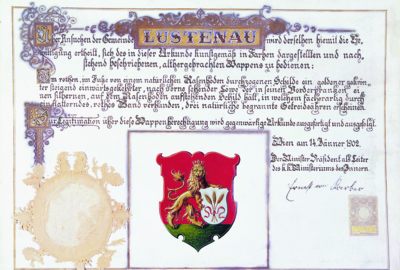 Über Ansuchen der Gemeinde LUSTENAU wird derselben hiemit die Be-
willigung ertheilt, sich des in dieser Urkunde kunstgemäß in Farben dargestellten und nach-
stehend beschriebenen, althergebrachten Wappens zu bedienen:
Im rothen, im Fuße von einem natürlichen Rasenboden durchzogenen Schilde ein goldener gekrön-
ter steigend einwärtsgekehrter, nach vorne sehender Löwe der in seinen Vorderpranken ei-
nen silbernen, auf dem Rasenboden aufsitzenden Schild hält, in welchem fächerartig durch
ein flatterndes, rothes Band verbunden, drei natürliche begrannte Getreideähren erscheinen.
Zur Legitimation über diese Wappenberechtigung wird gegenwärtige Urkunde ausgefertigt und ausgefolgt.
Wien am 14. Jänner 1902.
Der Minister Präsident als Leiter
des k.k. Ministeriums des Innern.